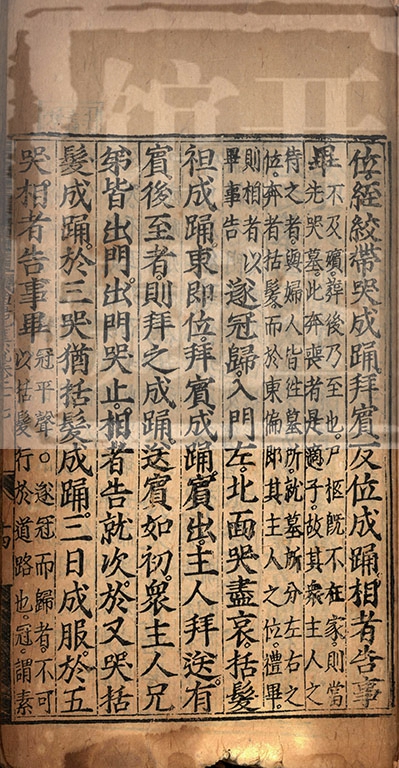 位絰絞帶哭成踊拜賓反位成踊相者告事
畢
不及殯葬後乃至也尸柩旣不在家則當
先哭墓此奔喪者是適子故其衆主人之
待之者與婦人皆往墓所就墓所分左右之
位奔者括髮而於東偏卽其主人之位禮畢
則相者以
畢事告
遂冠歸入門左北面哭盡哀括髮
袒成踊東卽位拜賓成踊賓出主人拜送有
賓後至者則拜之成踊送賓如初衆主人兄
弟皆出門出門哭止相者告就次於又哭括
髮成踊於三哭猶括髮成踊三日成服於五
哭相者告事畢
冠平聲○遂冠而歸者不可
以括髮行於道路也冠謂素